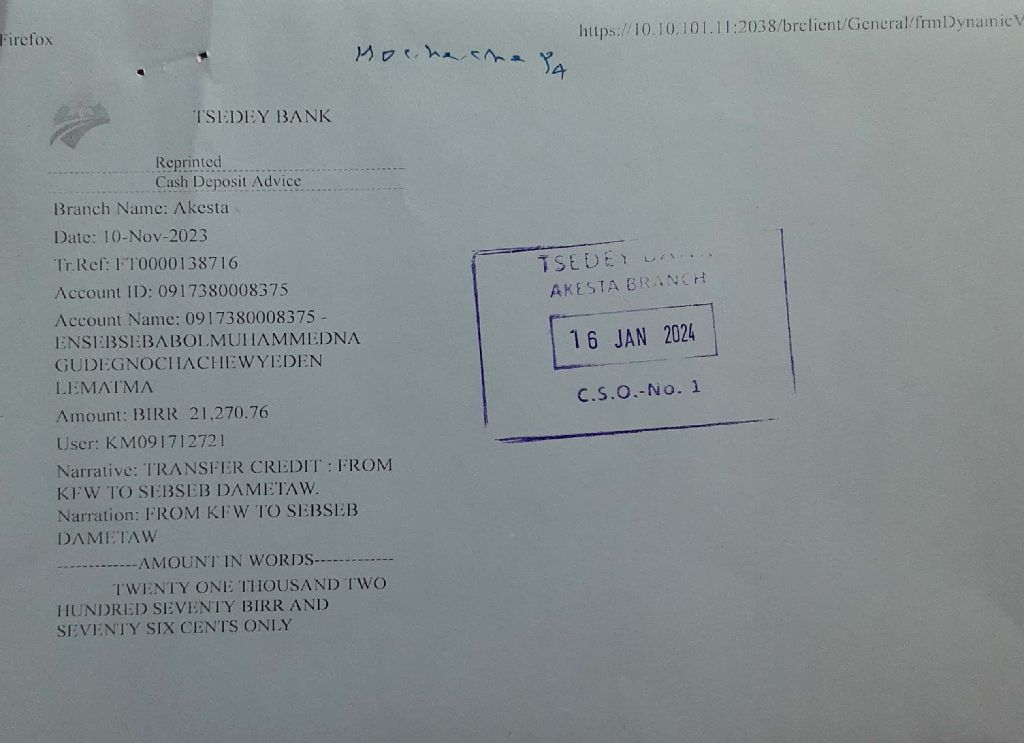 Firefox
https://10.10.101.11:2038/brclient/General/frmDynamicV
TSEDEY BANK
Reprinted
Cash Deposit Advice
Branch Name: Akesta
Date: 10-Nov-2023
Tr.Ref: FT0000138716
Account ID: 0917380008375
Account Name: 0917380008375 -
ENSEBSEBABOLMUHAMMEDNA
GUDEGNOCHACHEWYEDEN
LEMATMA
Amount: BIRR 21,270.76
User: KM091712721
Narrative: TRANSFER CREDIT : FROM
KFW TO SEBSEB DAMETAW.
Narration: FROM KFW TO SEBSEB
DAMETAW
-------------AMOUNT IN WORDS-------------
TWENTY ONE THOUSAND TWO
HUNDRED SEVENTY BIRR AND
SEVENTY SIX CENTS ONLY
TSEDEY
AKESTA BRANCH
16 JAN 2024
C.S.O.-No. 1